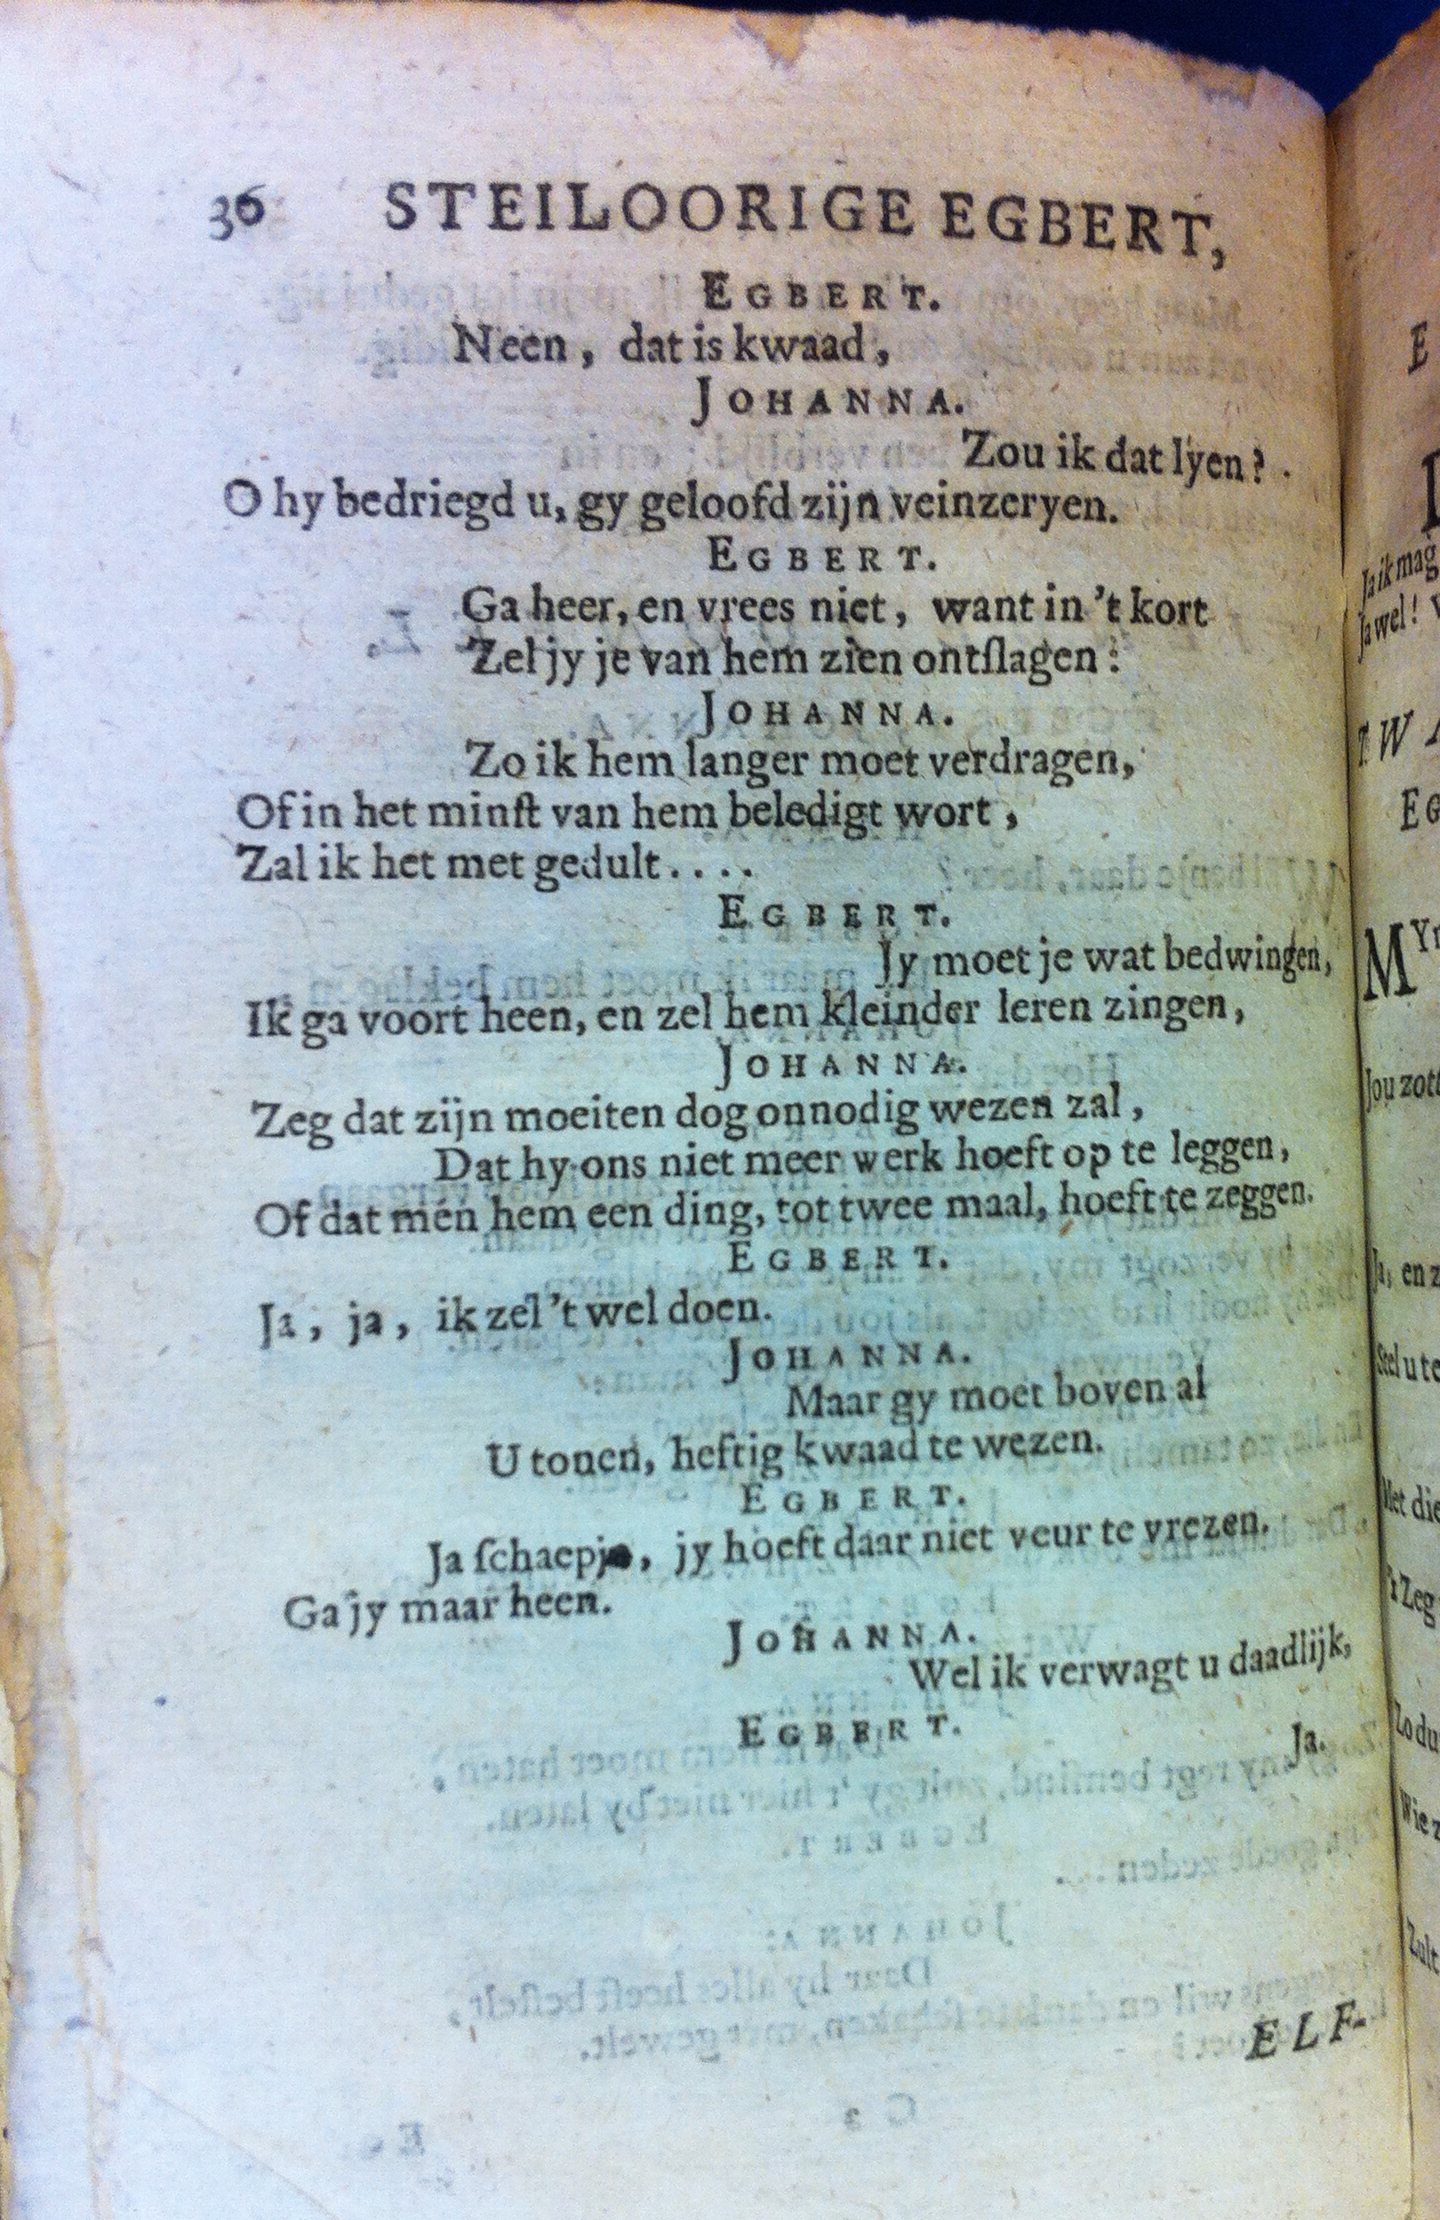 36 STEILOORIGE EGBERT,
EGBERT.
Neen, dat is kwaad,
JOHANNA.
Zou ik dat lyen?
O hy bedriegd u, gy geloofd zijn veinzeryen.
EGBERT.
Ga heer, en vrees niet, want in 't kort
Zel jy je van hem zien ontſlagen:
JOHANNA.
Zo ik hem langer moet verdragen,
Of in het minſt van hem beledigt wort,
Zal ik het met gedult....
EGBERT.
Jy moet je wat bedwingen,
Ik ga voort heen, en zel hem kleinder leren zingen,
JOHANNA.
Zeg dat zijn moeiten dog onnodig wezen zal,
Dat hy ons niet meer werk hoeft op te leggen,
Of dat men hem een ding, tot twee maal, hoeft te zeggen.
EGBERT.
Ja, ja, ik zel 't wel doen.
JOHANNA.
Maar gy moet boven al
U tonen, heftig kwaad te wezen.
EGBERT.
Ja ſchaepje, jy hoeft daar niet veur te vrezen.
Ga jy maar heen.
JOHANNA.
Wel ik verwagt u daadlijk,
EGBERT.
Ja.
ELF-
E
Ja ik mag
Ja wel!
EG
MYn
Jou zott
Ja, en z
Stel u te
Met die
't Zeg
Zo du
Wie z
Zult